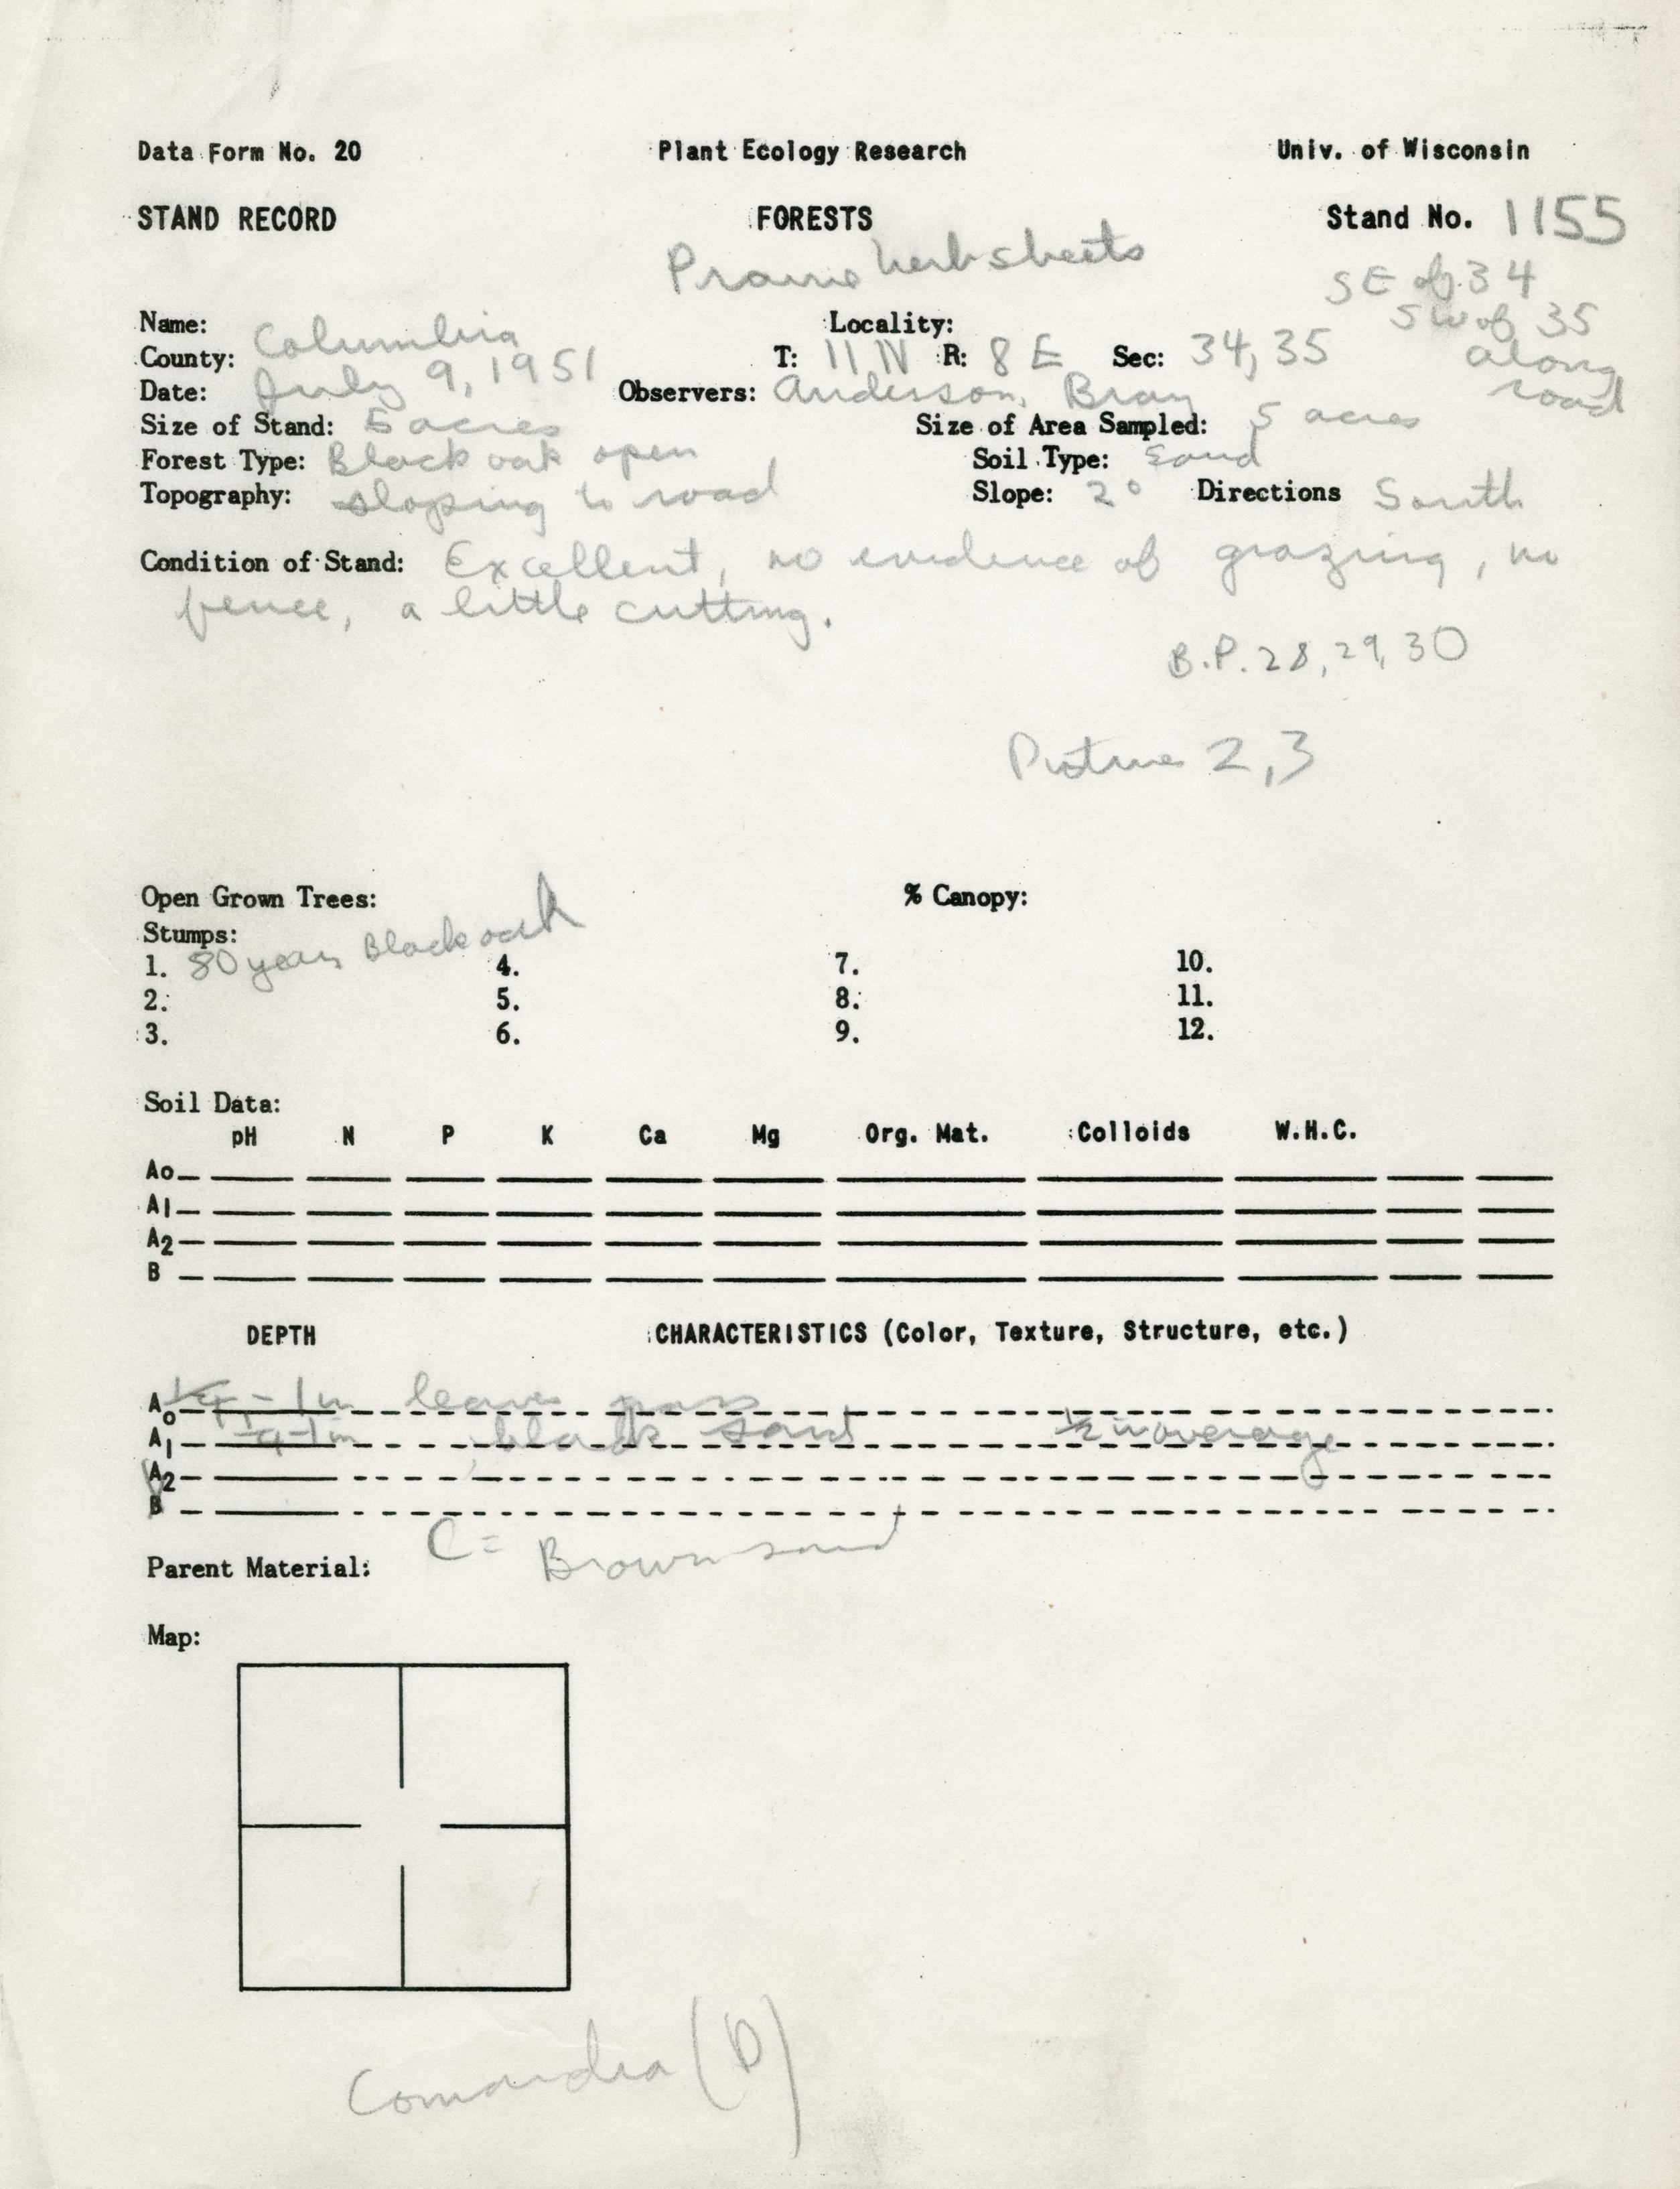 Data Form No. 20 Plant Ecology Research Univ. of Wisconsin
STAND RECORD FORESTS Stand No. 1155
Prairie herb sheets SE of 34
SW of 35
along
road
Name: Locality:
County: Columbia T: 11 N R: 8 E Sec: 34, 35
Date: July 9, 1951 Observers: Anderson, Bray
Size of Stand: 5 acres Size of Area Sampled: 5 acres
Forest Type: Black oak open Soil Type: Sand
Topography: sloping to road Slope: 2° Directions South
Condition of Stand: Excellent, no evidence of grazing, no
fence, a little cutting.
B.P. 28, 29, 30
Picture 2,3
Open Grown Trees: % Canopy:
Stumps:
1. 80 years Black oak 4. 7. 10.
2. 5. 8. 11.
3. 6. 9. 12.
Soil Data:
pH N P K Ca Mg Org. Mat. Colloids W.H.C.
Ao
A1
A2
B
DEPTH CHARACTERISTICS (Color, Texture, Structure, etc.)
Ao 1/4 - 1 in leaves
A1 1/4 - 1 in black sand 1/2 in average
A2
B
C = Brown sand
Parent Material:
Map:
Comandra (D)